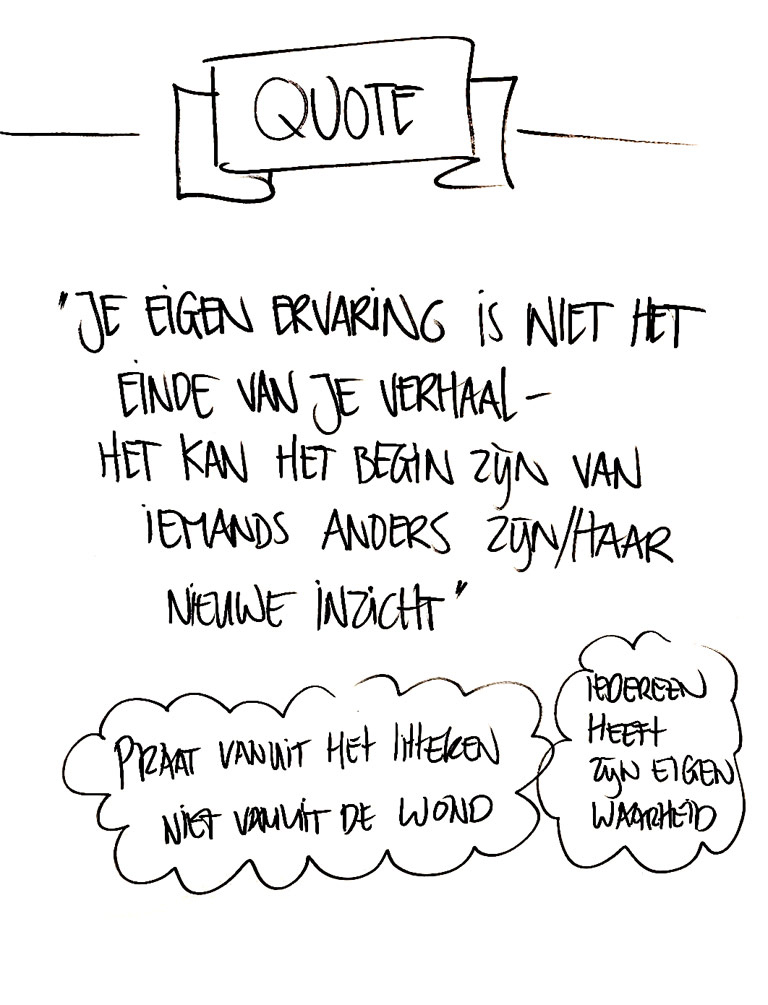 QUOTE
"JE EIGEN ERVARING IS NIET HET
EINDE VAN JE VERHAAL -
HET KAN HET BEGIN ZIJN VAN
IEMANDS ANDERS ZIJN/HAAR
NIEUWE INZICHT"
PRAAT VANUIT HET litteken
NIET VANUIT DE WOND
IEDEREEN
HEEFT
ZIJN EIGEN
WAARHEID